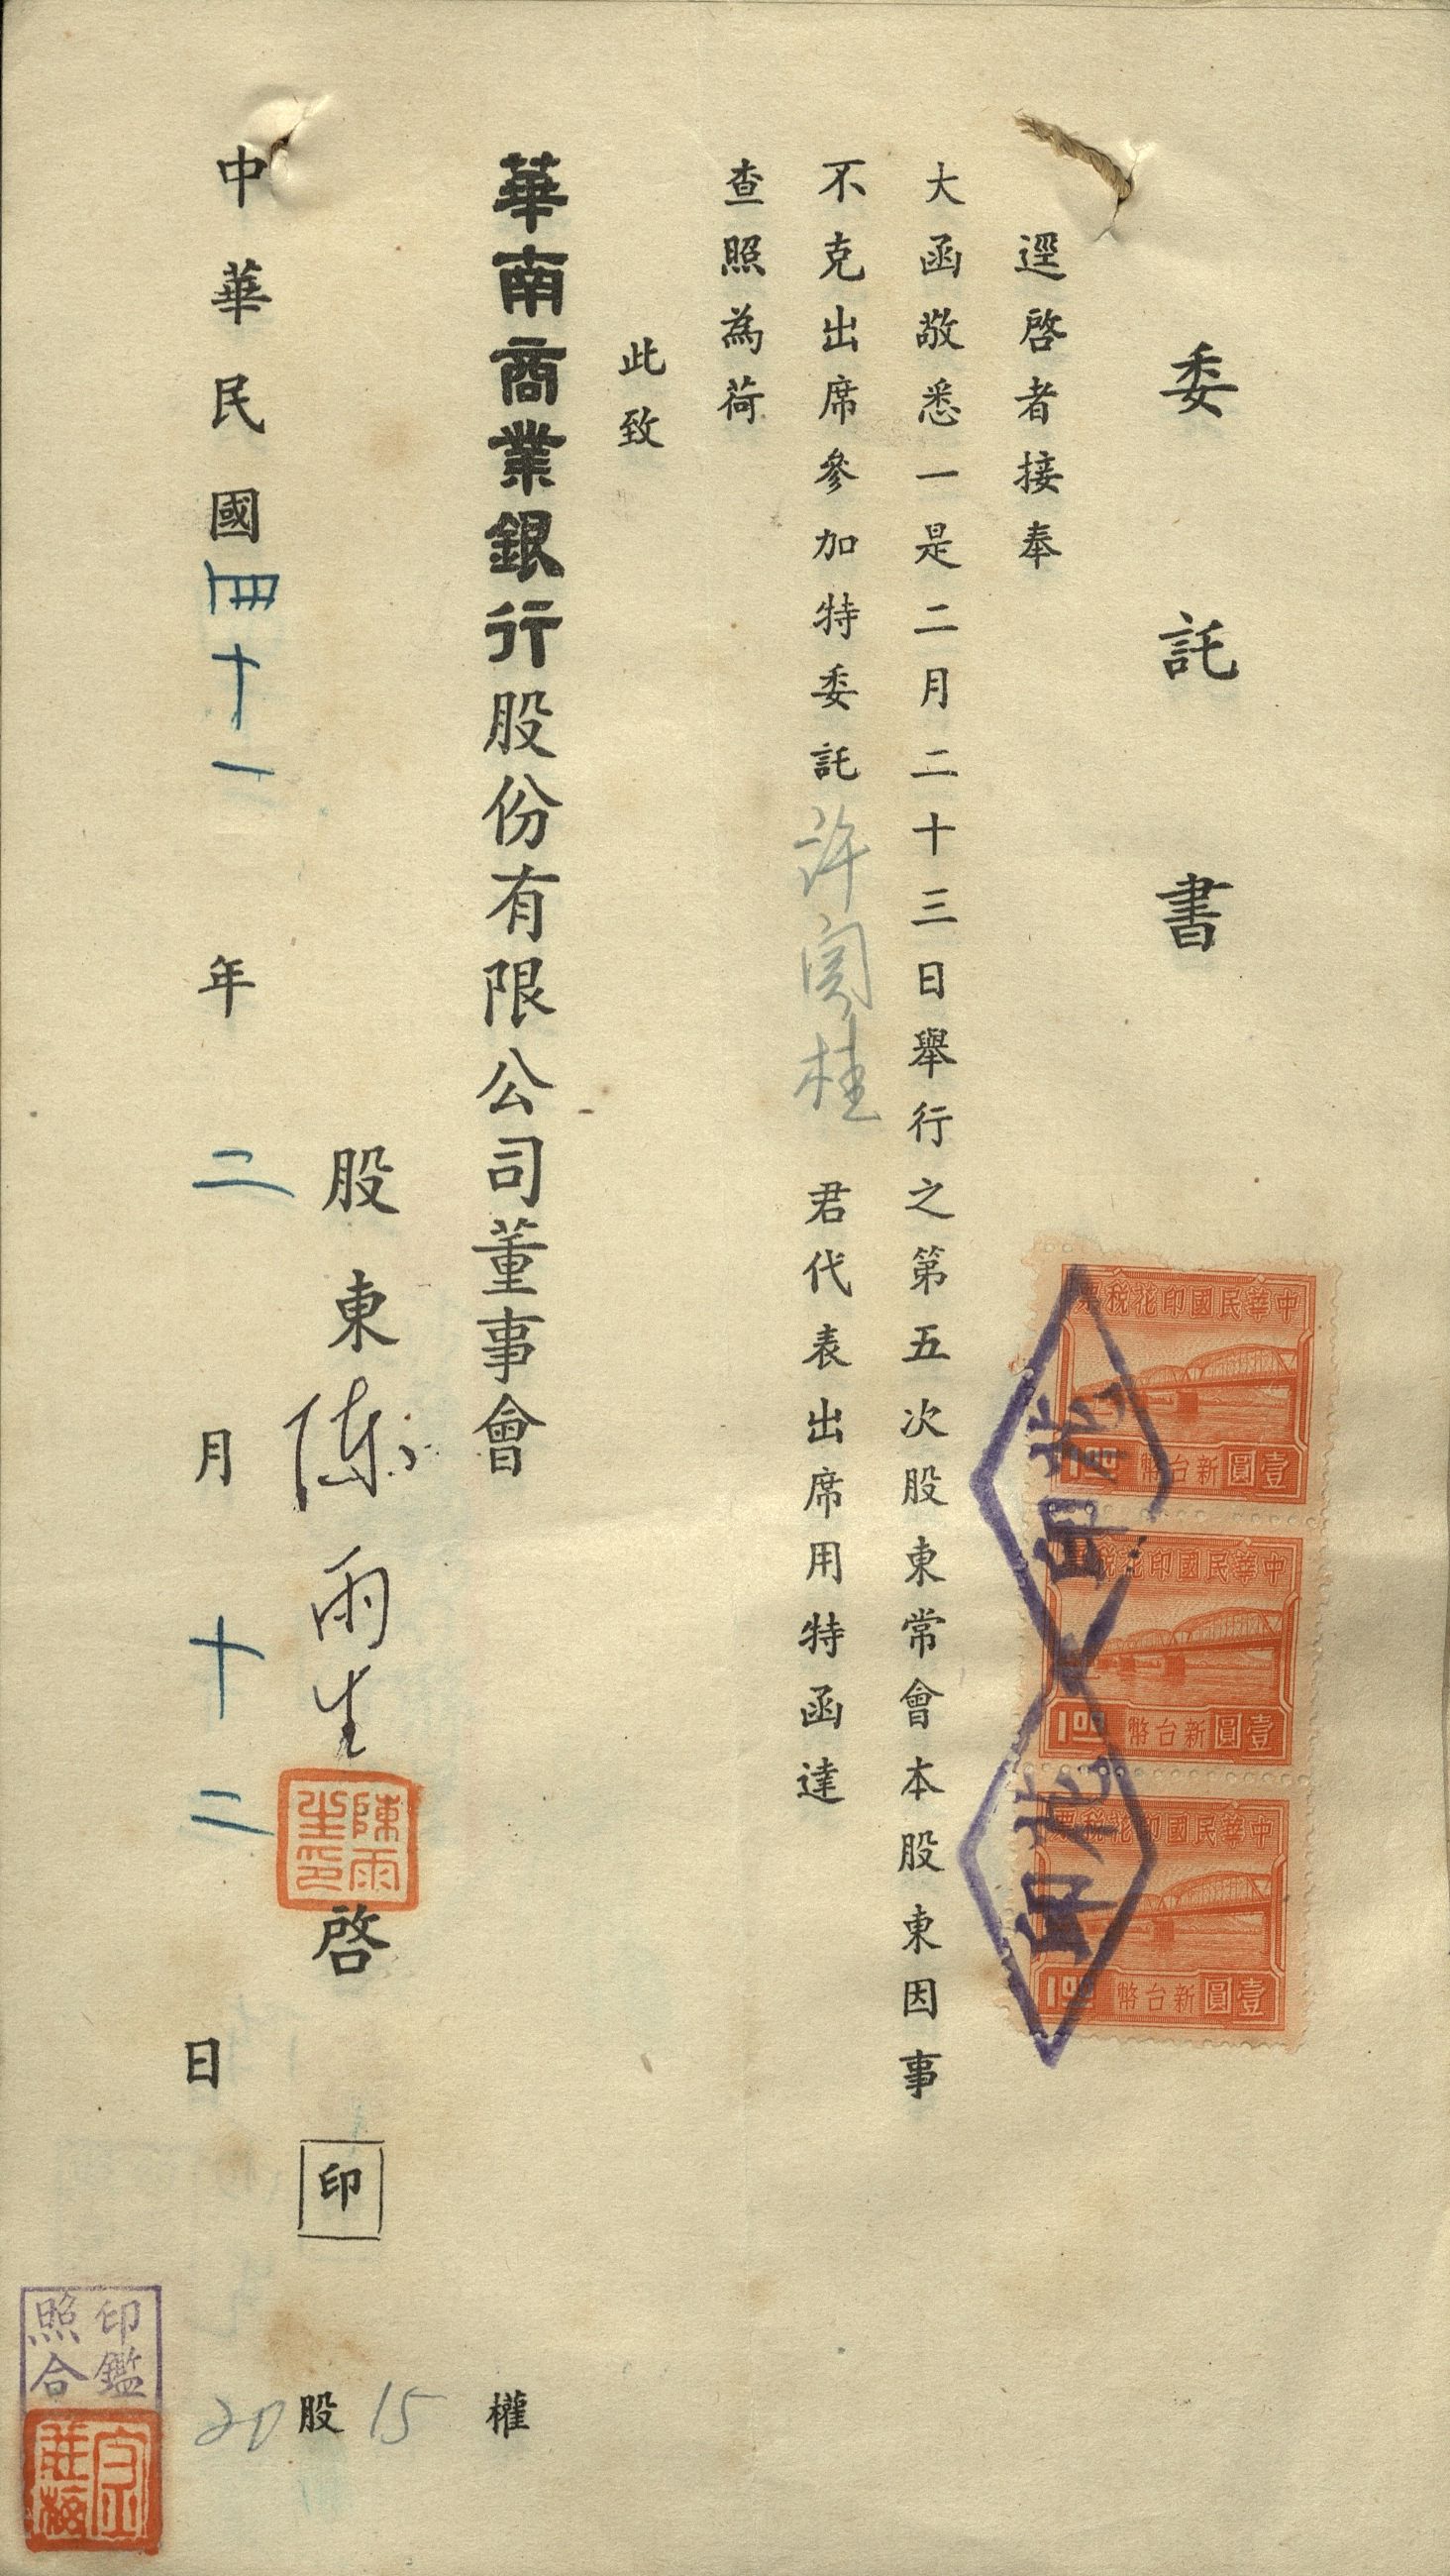 委託書
逕啓者接奉
大函敬悉一是二月二十三日舉行之第五次股東常會本股東因事
不克出席參加特委託許丙桂君代表出席用特函達
查照為荷
此致
華南商業銀行股份有限公司董事會
股東陳雨生啓 印
陳雨生印
中華民國四十一年二月十二日
中華民國印花稅票
1.00 新台幣壹圓
中華民國印花稅票
1.00 新台幣壹圓
中華民國印花稅票
1.00 新台幣壹圓
印花
印花
15權
20股
印鑑照合